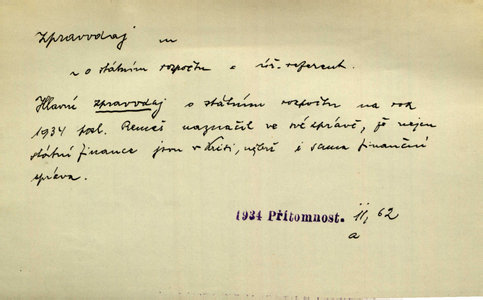 Zpravodaj m
~ o státním rozpočtu =
Hlavní zpravodaj o státním rozpočtu na rok
1934 posl. Remeš naznačil ve své zprávě, že nejen
státní finance jsou v krisi, nýbrž i sama finanční
správa.
1934 Přítomnost. II, 62
a